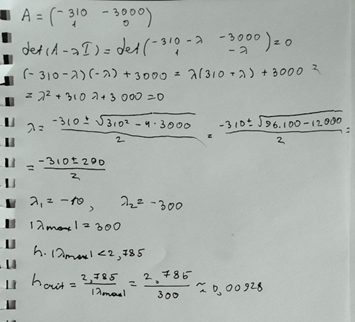 A = (-310 -3000
1 0)
det(A-λI) = det(-310-λ -3000
1 -λ) = 0
(-310-λ)(-λ) + 3000 = λ(310+λ) + 3000 =
= λ² + 310λ + 3000 = 0
λ = (-310 ± √(310² - 4·3000))/2 = (-310 ± √(96.100 - 12000))/2 =
= (-310 ± 290)/2
λ₁ = -10, λ₂ = -300
|λmax| = 300
h·|λmax| < 2,785
hcrit = 2,785/|λmax| = 2,785/300 ≈ 0,00928